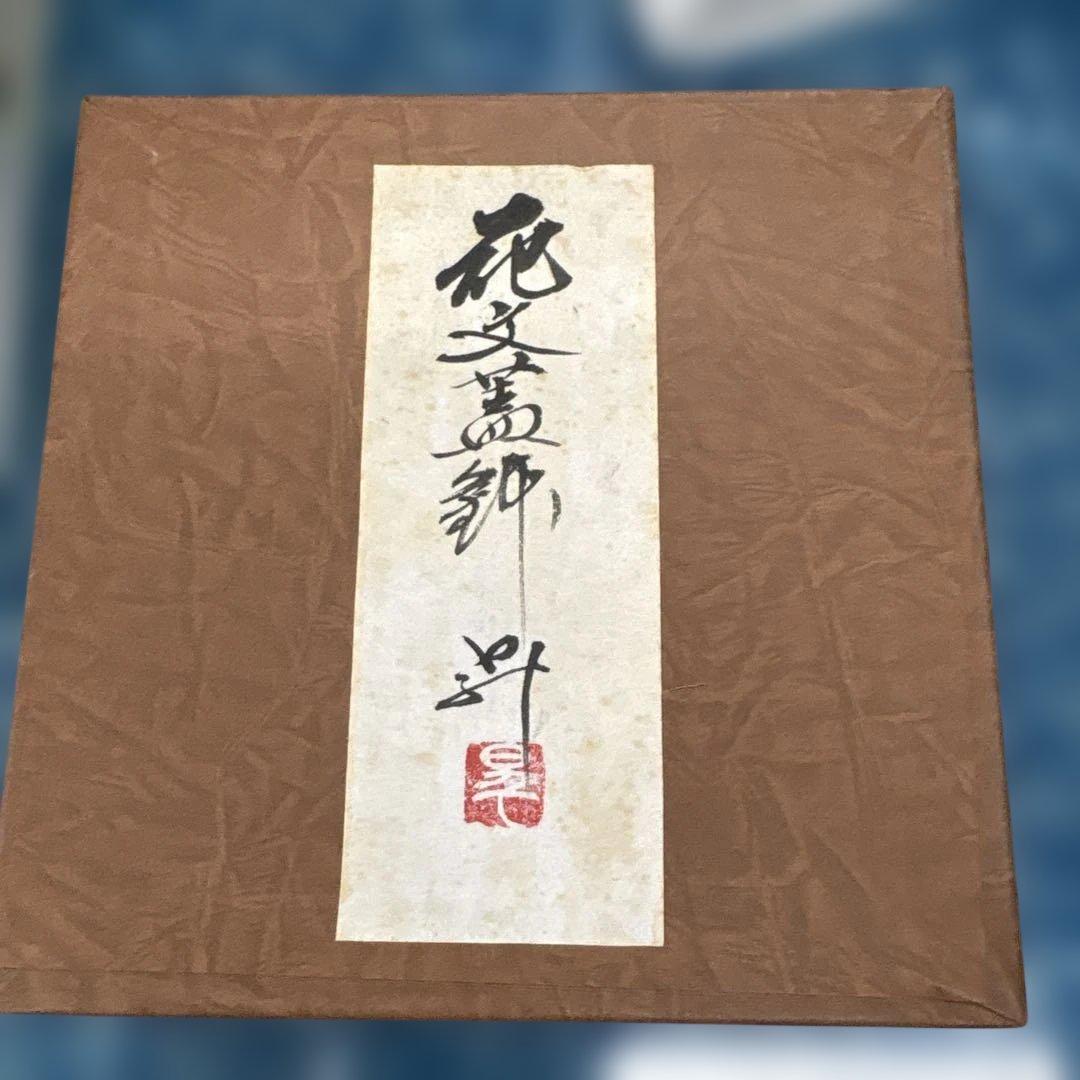 花文蓋鉢
昇
昇